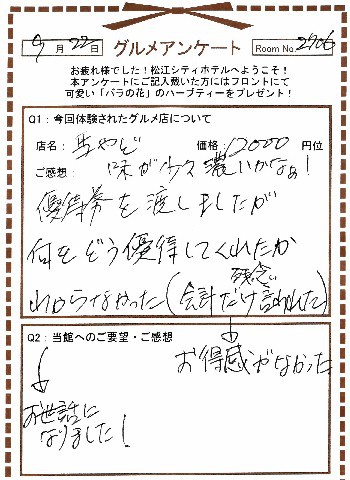 9月22日 グルメアンケート Room No. 2706
お疲れ様でした！松江シティホテルへようこそ！
本アンケートにご記入戴いた方にはフロントにて
可愛い「バラの花」のハーブティーをプレゼント！
Q1：今回体験されたグルメ店について
店名： やど 価格：12000 円位
ご感想： 味が少々濃いかなぁ！
優待券を渡しましたが
何をどう優待してくれたか
わからなかった（会計だけ言われた）
残念。
お得感がなかった
Q2：当館へのご要望・ご感想
お世話に
なりました！